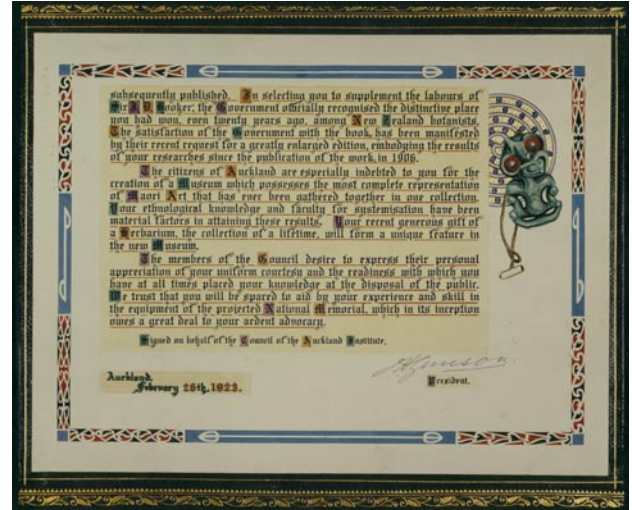 subsequently published. In selecting you to supplement the labours of
Sir J. D. Hooker, the Government officially recognised the distinctive place
you had won, even twenty years ago, among New Zealand botanists.
The satisfaction of the Government with the book, has been manifested
by their recent request for a greatly enlarged edition, embodying the results
of your researches since the publication of the work, in 1906.
The citizens of Auckland are especially indebted to you for the
creation of a Museum which possesses the most complete representation
of Maori Art that has ever been gathered together in one collection.
Your ethnological knowledge and faculty for systemisation have been
material factors in attaining these results. Your recent generous gift of
a Herbarium, the collection of a lifetime, will form a unique feature in
the new Museum.
The members of the Council desire to express their personal
appreciation of your uniform courtesy and the readiness with which you
have at all times placed your knowledge at the disposal of the public.
We trust that you will be spared to aid by your experience and skill in
the equipment of the projected National Memorial, which in its inception
owes a great deal to your ardent advocacy.
Signed on behalf of the Council of the Auckland Institute,
J H Gunson.
President.
Auckland,
February 26th, 1923.